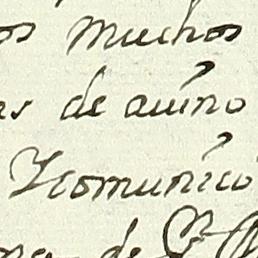 os muchos
as de avino
Y comunicò
de Gn